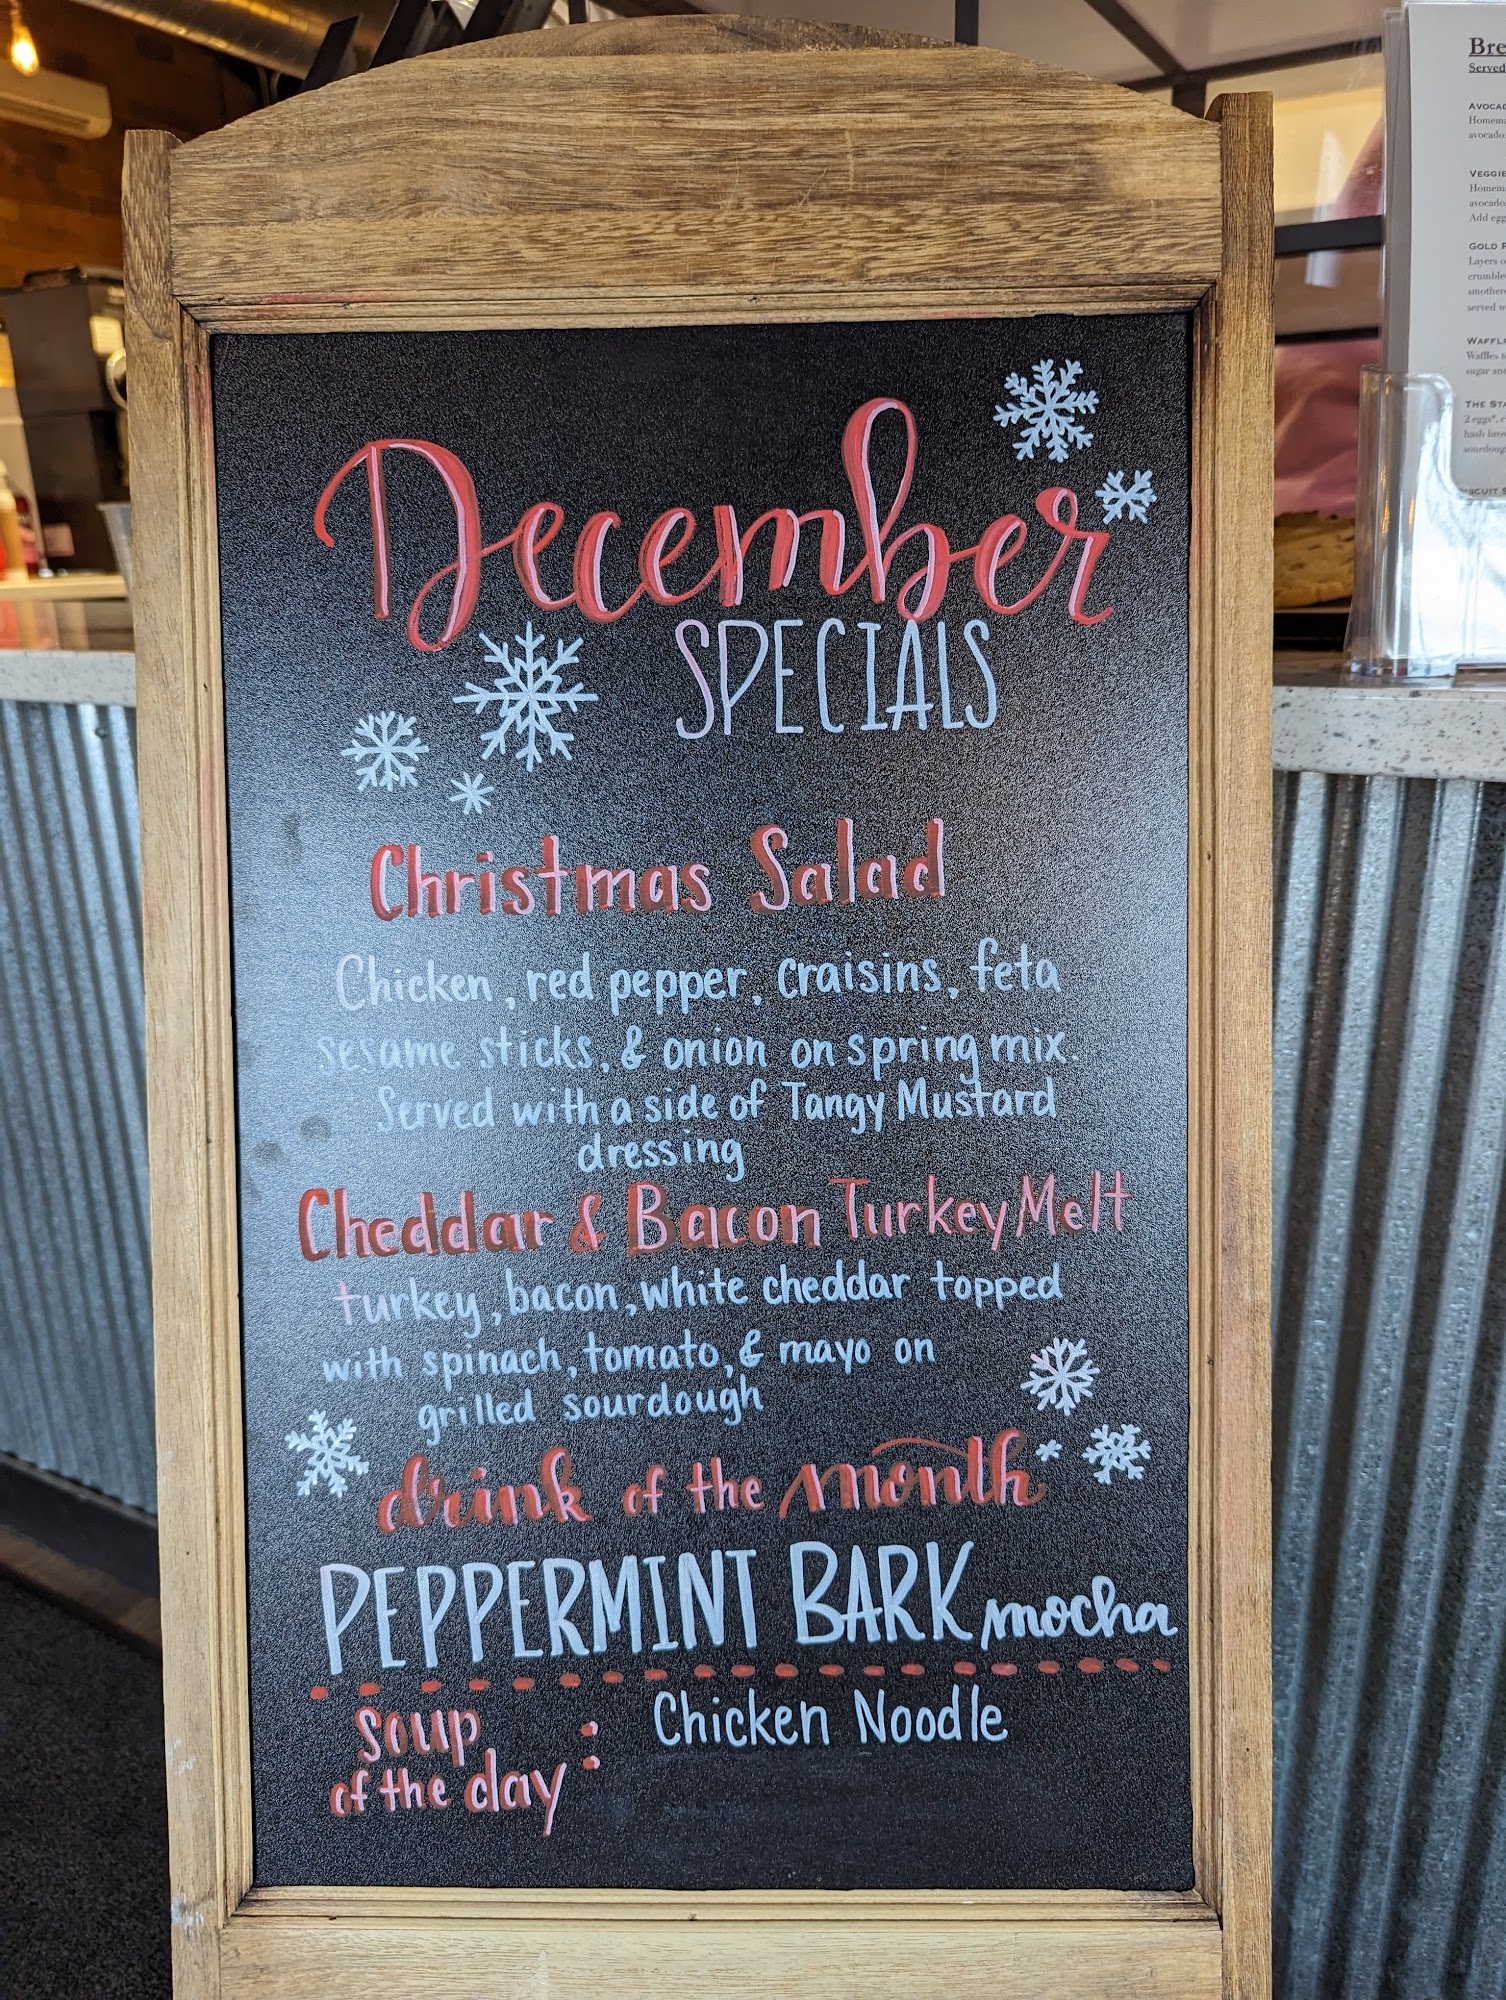 December
SPECIALS
Christmas Salad
Chicken, red pepper, craisins, feta
sesame sticks, & onion on spring mix.
Served with a side of Tangy Mustard
dressing
Cheddar & Bacon Turkey Melt
turkey, bacon, white cheddar topped
with spinach, tomato, & mayo on
grilled sourdough
drink of the month
PEPPERMINT BARK mocha
soup
of the day : Chicken Noodle
Bre
Served
AVOCAD
Homema
avocado
VEGGIE
Homema
avocado,
Add egg
GOLD
Layers o
crumble
smothere
served w
WAFFL
Waffles
sugar and
THE STA
2 eggs*, c
hash brow
sourdoug